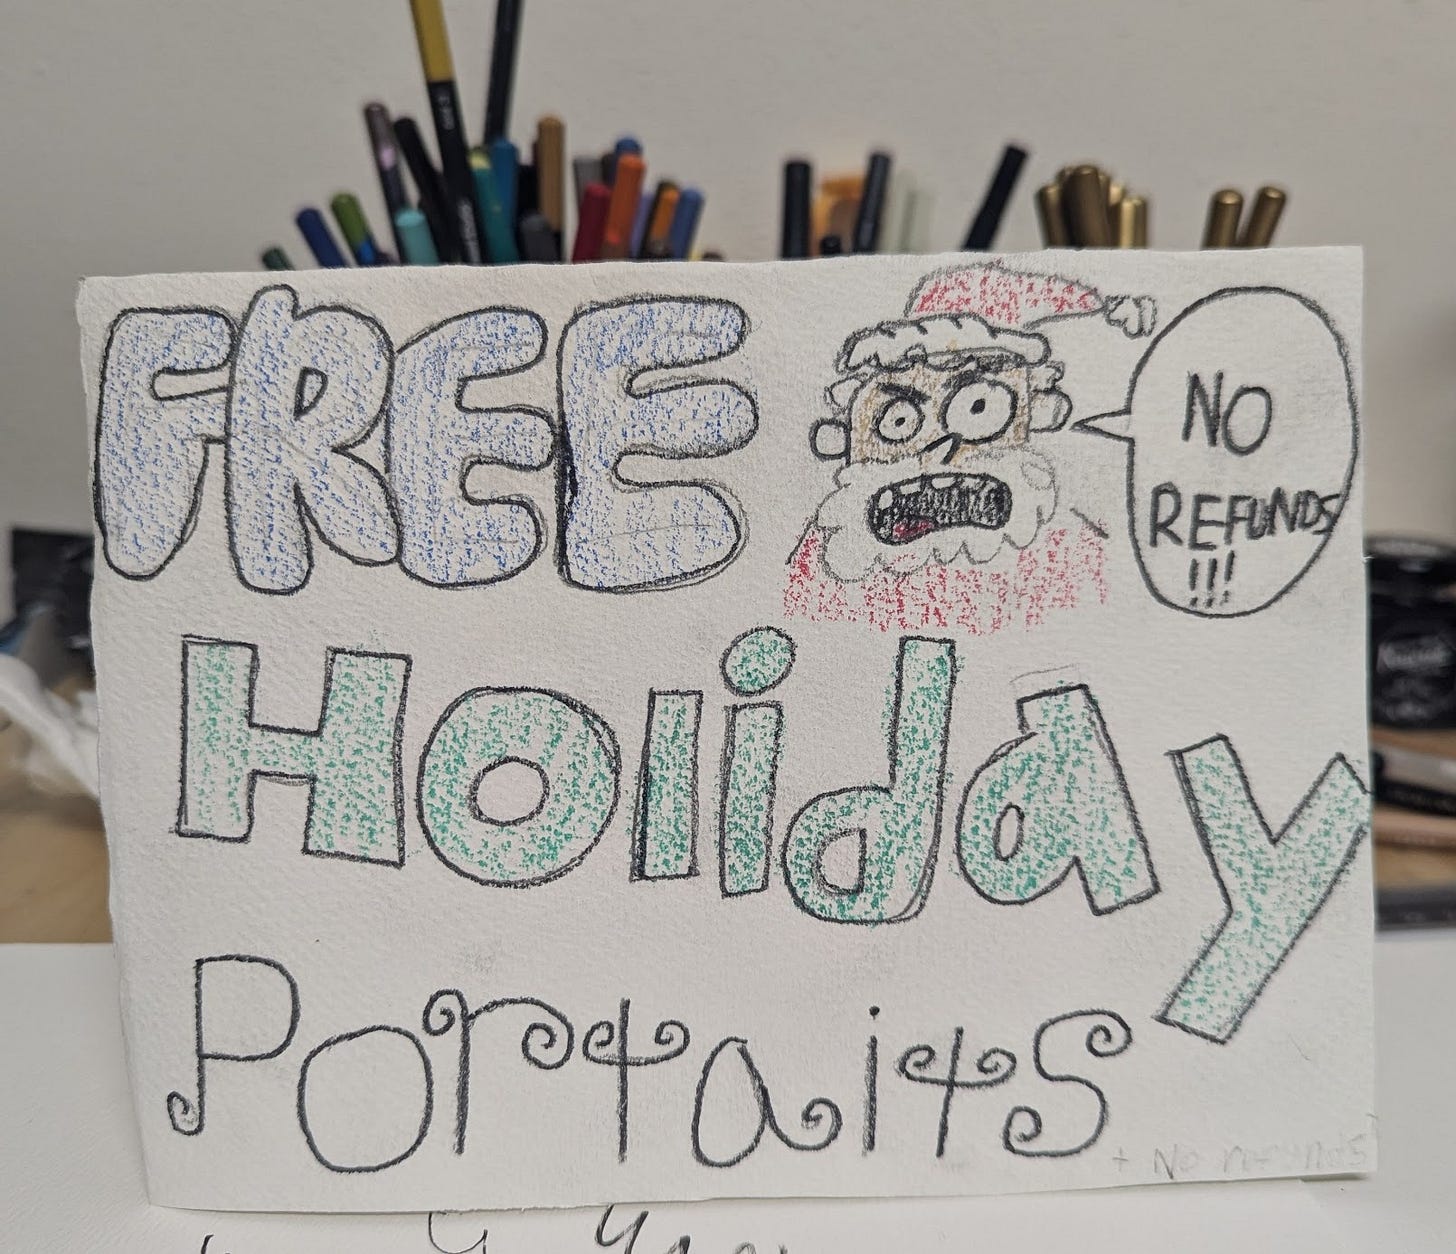 FREE
NO
REFUNDS
!!!
Holiday
Portaits
+ No refunds